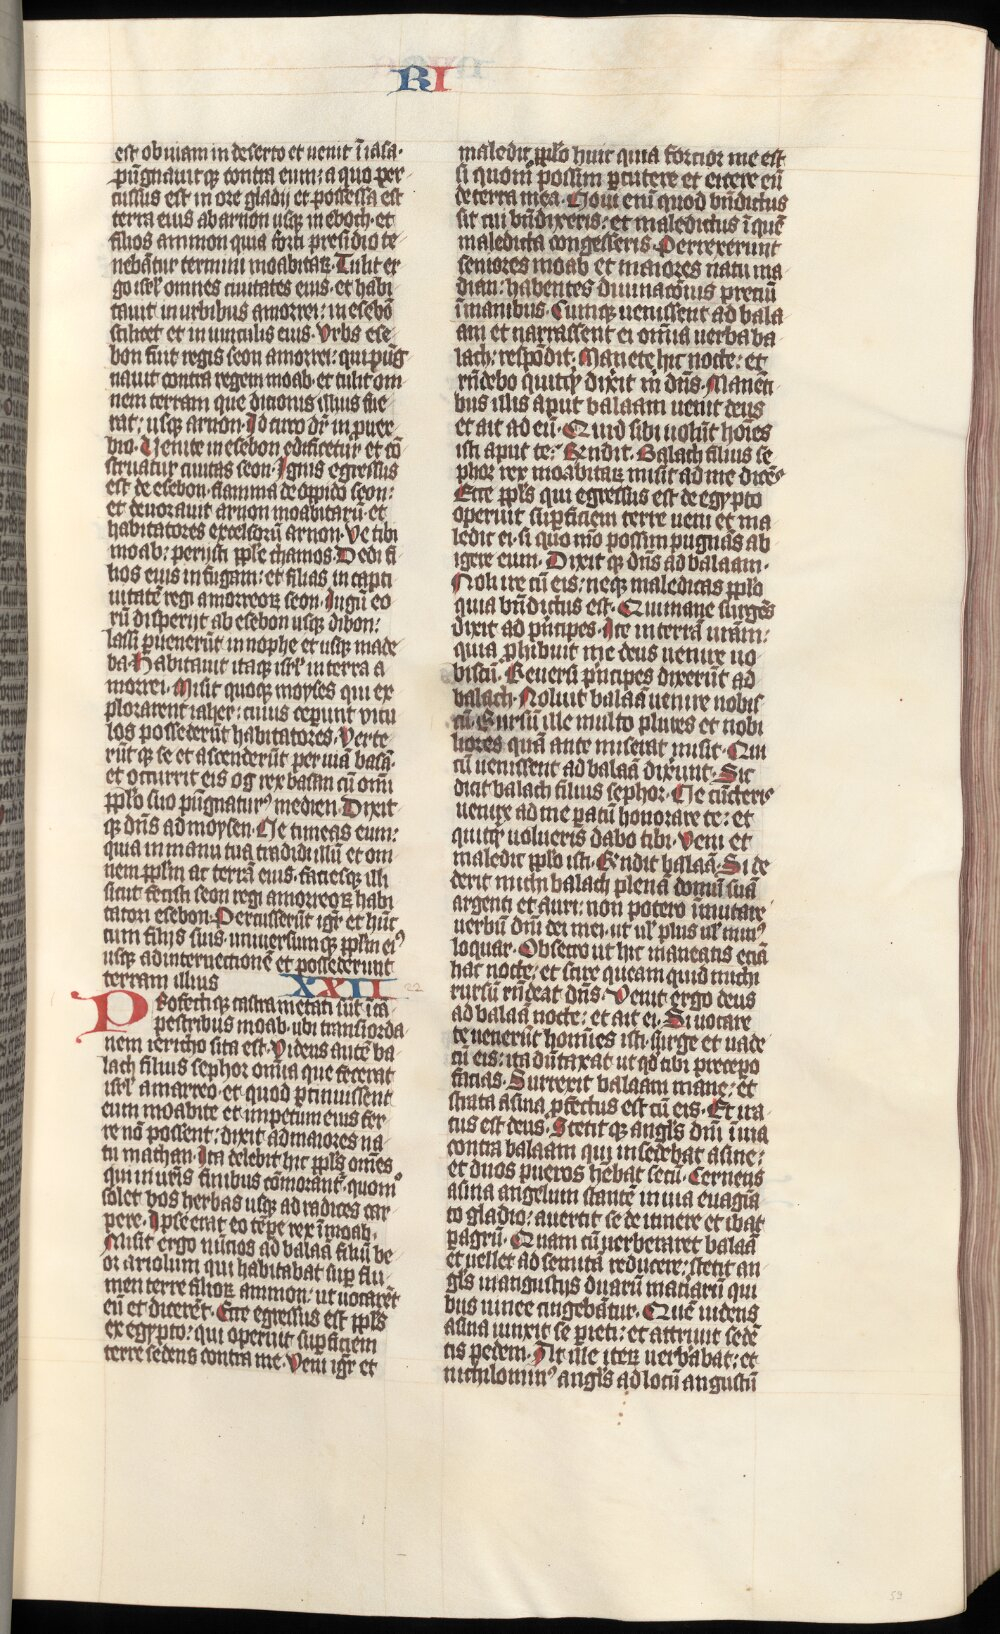 RI
est obuiam in deserto et uenit ī iasa·
pūgnauitqꝫ contra eum: a quo per
cussus est in ore gladij et possessa est
terra eius ab arnon usqꝫ in eboch· et
filios ammon quia forti presidio te
nebātur termini moabitaꝝ· Tulit er
go isrl' omnes ciuitates eius· et habi
tauit in urbibus amorrei: in esebō
scilicet et in uiculis eius· Vrbs ese
bon fuit regis seon amorrei: qui pūg
nauit contra regem moab· et tulit om
nem terram que dicionis illius fue
rat: usqꝫ arnon· Idcirco dr̄ in puer
bio· Venite in esebon edificetur et cō
struatur ciuitas seon· Ignis egressus
est de esebon· flamma de oppido seon:
et deuorauit arnon moabitarū· et
habitatores excelsorū arnon· Ve tibi
moab: peristi pple chamos· Dedi fi
lios eius in fugam: et filias in capti
uitatē regi amorreoꝝ seon· Iugū eo
rū disperiit ab esebon usqꝫ dibon:
lassi puenerūt in nophe et usqꝫ mede
ba· Habitauit itaqꝫ isrl' in terra a
morrei· Misit quoqꝫ moyses qui ex
plorarent iaher: cuius ceperunt vicu
los possederūt habitatores· Verte
rūtqꝫ se et ascenderūt per uiā basā·
et occurrit eis og rex basan cū omī
pplo suo pūgnatur' in edien· Dixit
qꝫ dn̄s ad moysen· Ne timeas eum:
quia in manu tua tradidi illū et om
nem pplm ac terrā eius· faciesqꝫ illi
sicut fecisti seon regi amorreoꝝ habi
tatori esebon· Percusserūt igr̄ et hūc
cum filijs suis· uniuersumqꝫ pplm ei⁹
usqꝫ ad internectionē et possederunt
terram illius XXII 22
Profectiqꝫ castrametati sūt ī cā
pestribus moab· ubi trans iorda
nem iericho sita est· Videns autē ba
lach filius sephor omīa que fecerat
isrl' amorreo· et quod ptimuissent
eum moabite et impetum eius fer
re nō possent: dixit ad maiores na
tu madian· Ita delebit hic ppls om̄es
qui in ur̄is finibus cōmorant̄· quom⁰
solet bos herbas usqꝫ ad radices car
pere· Ipse erat eo tēpe rex ī moab·
Misit ergo nūcios ad balaā filiū be
or ariolum qui habitabat sup flu
men terre filioꝝ ammon: ut uocarēt
eū et dicerēt· Ecce egressus est ppls
ex egypto: qui operuit supficiem
terre sedens contra me· Veni igr̄ et
maledic pplo huic quia forcior me est
si quom̄ possim pcutere et eicere eū
de terra mea· Noui enī quod bn̄dictus
sit cui bn̄dixeris: et maledictus ī quē
maledicta congesseris· Perrexerunt
seniores moab et maiores natu ma
dian: habentes diuinacōnis preciū
ī manibus· Cumqꝫ uenissent ad bala
am et narrassent ei omīa uerba ba
lach: respōdit· Manete hic nocte: et
rn̄debo quitqꝫ dixit m̄ dn̄s· Maneti
bus illis aput balaam uenit deus
et ait ad eū· Quid sibi uolūt hoīes
isti aput te: Rn̄dit· Balach filius se
phor rex moabitaꝝ misit ad me dicēs
Ecce ppls qui egressus est de egypto
operuit supficiem terre ueni et ma
ledic ei· si quo mō possim pugnās ab
igere eum· Dixitqꝫ dn̄s ad balaam·
Noli ire cū eis: neqꝫ maledicas pplo
quia bn̄dictus est· Qui mane surgēs
dixit ad p̄ncipes· Ite in terrā uram:
quia phibuit me deus uenire uo
biscū· Reuersi p̄ncipes dixerūt ad
balach· Noluit balaā uenire nobis
cū· Rursū ille multo plures et nobi
liores quā ante miserat misit· Qui
cū uenissent ad balaā dixerunt· Sic
dicit balach filius sephor· Ne cūcteris
uenire ad me patū honorare te: et
quitqꝫ uolueris dabo tibi· Veni et
maledic pplo isti· Rn̄dit balaā· Si de
derit michi balach plenā domū suā
argenti et auri: non potero īmutare
uerbū dn̄i dei mei· ut ul' plus ul' min⁹
loquar· Obsecro ut hic maneatis eciā
hac nocte: et scire queam quid michi
rursū rn̄deat dn̄s· Venit ergo deus
ad balaā nocte: et ait ei· Si uocare
te uenerūt homīes isti· surge et uade
cū eis: ita dūtaxat ut qd tibi precepo
facias· Surrexit balaam mane: et
strata asina pfectus est cū eis· Et ira
tus est deus· Stetitqꝫ angl's dn̄i ī uia
contra balaam qui insedebat asine:
et duos pueros hēbat secū· Cernens
asina angelum stantē in uia euagīa
to gladio: auertit se de itinere et ibat
p agrū· Quam cū uerberaret balaā
et uellet ad semitā reducere: stetit an
gl's in angustijs duarū maciarū qui
bus uinee cingebātur· Quē uidens
asina iunxit se pieti: et attriuit sedē
tis pedem· At ille iteꝝ uerbabat: et
nichilomin⁹ angl's ad locū angustū
59